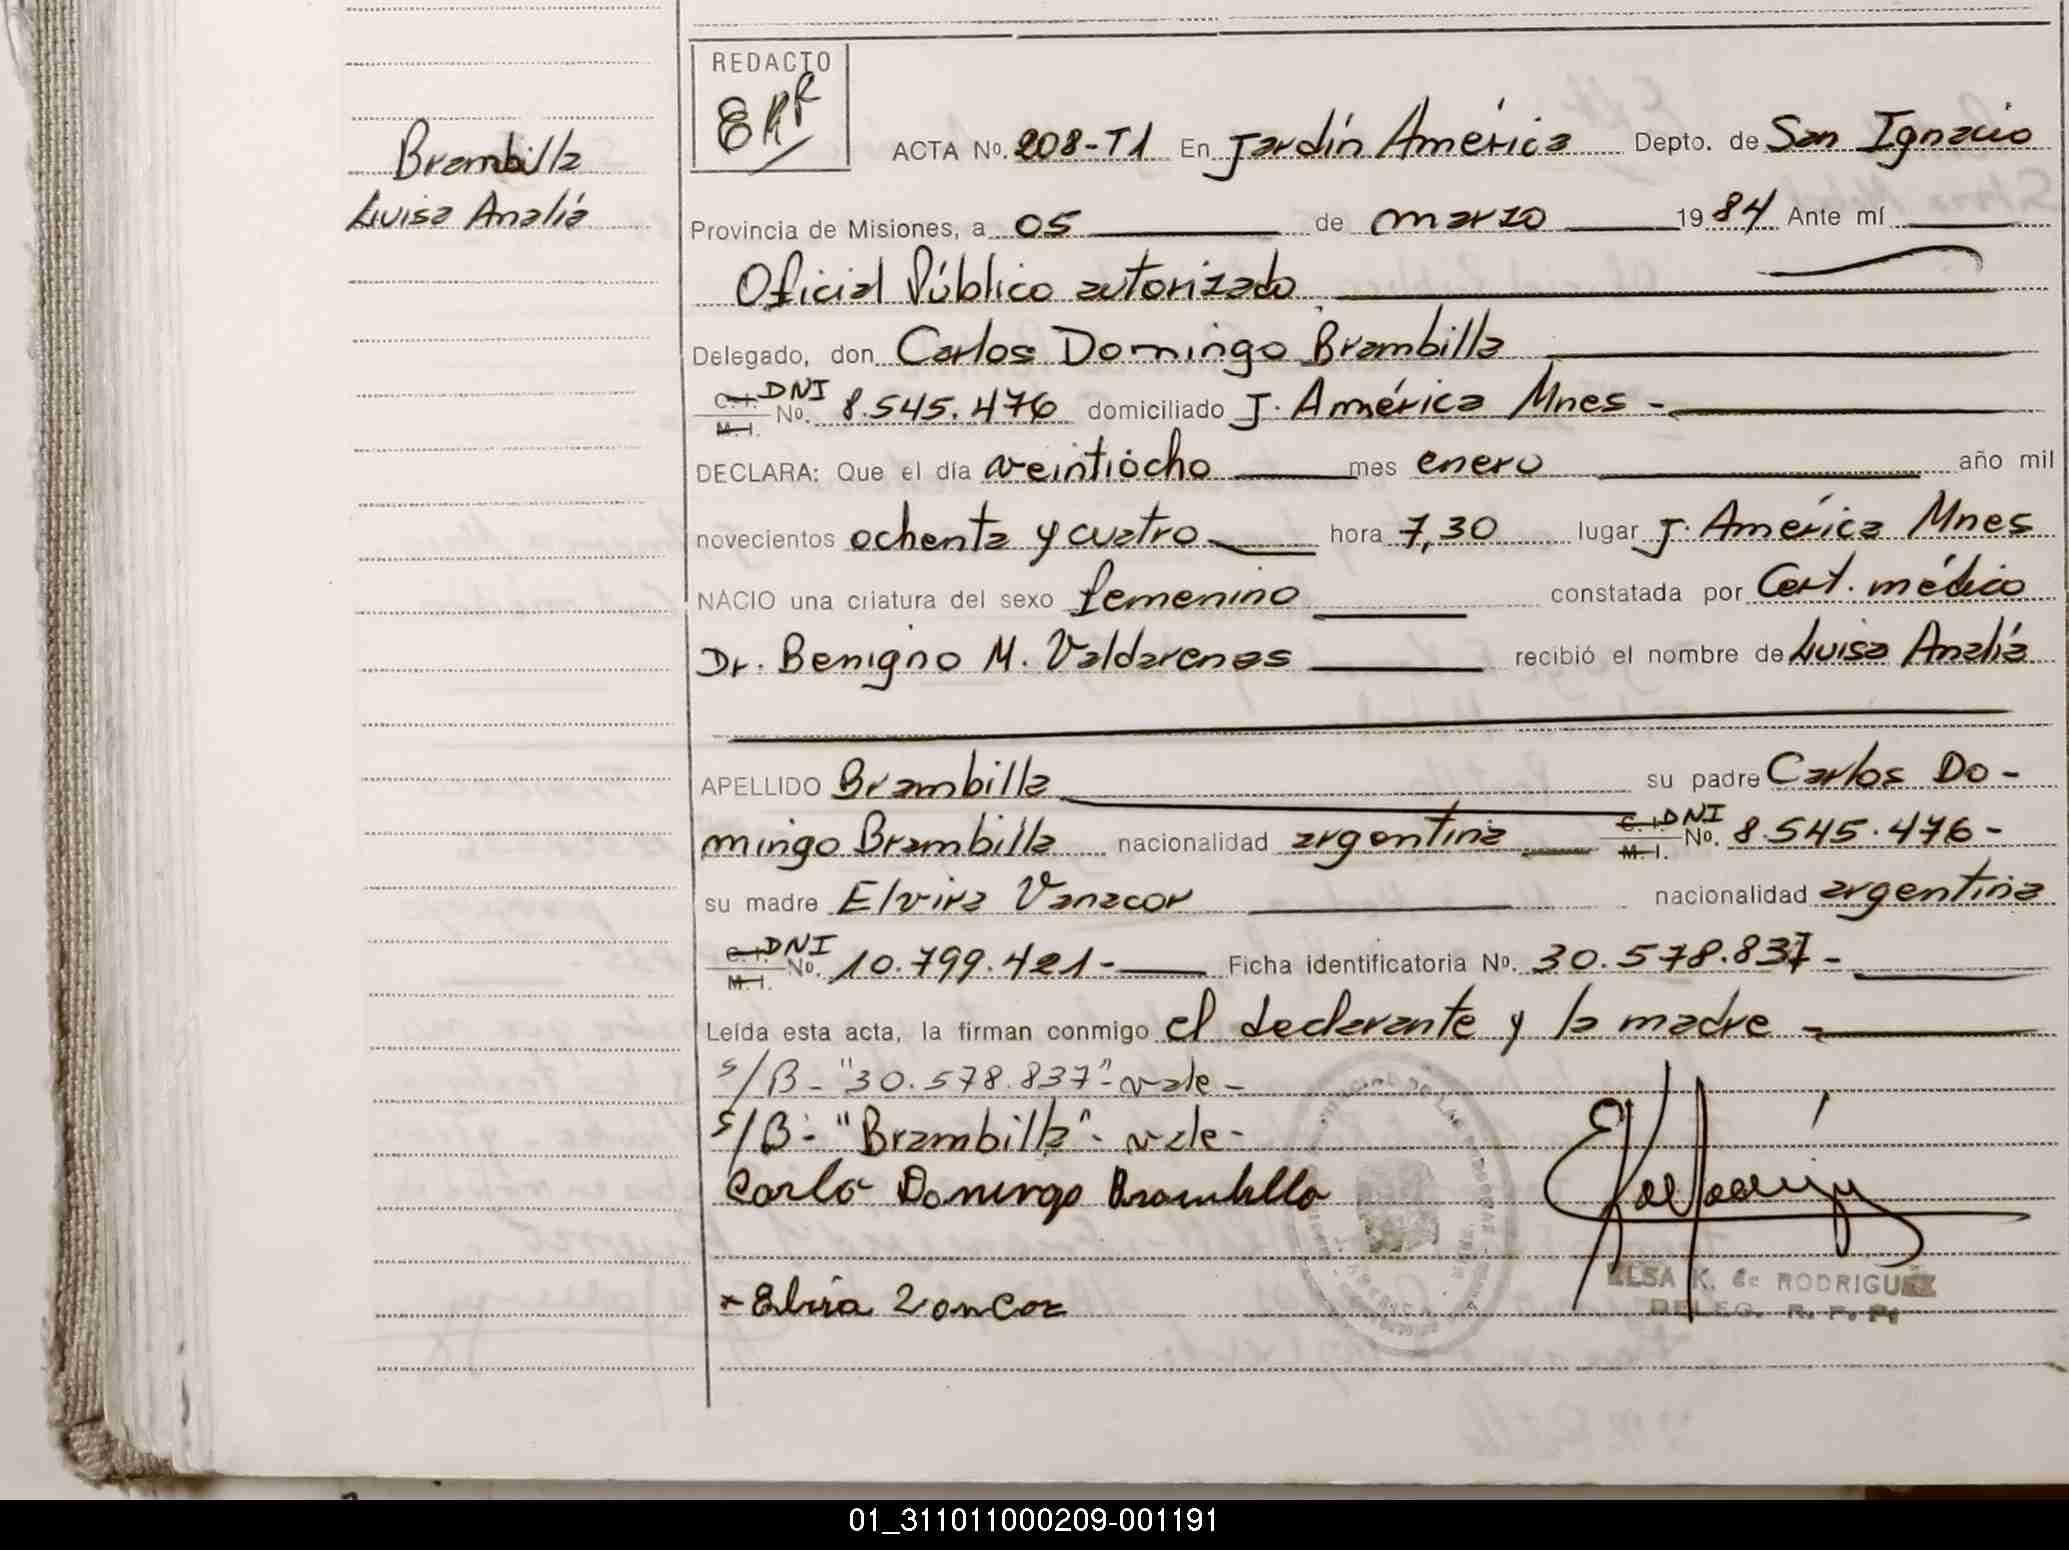 REDACTO
ERR
Brambilla
Luisa Analía
ACTA Nº. 208-T1 En Jardín América Depto. de San Ignacio
Provincia de Misiones, a 05 de marzo 1984 Ante mí
Oficial Público autorizado
Delegado, don Carlos Domingo Brambilla
C.I. DNI
M.I. No. 8.545.476 domiciliado J. América Mnes -
DECLARA: Que el día veintiocho mes enero año mil
novecientos ochenta y cuatro hora 7,30 lugar J. América Mnes
NACIO una criatura del sexo femenino constatada por Cert. médico
Dr. Benigno M. Valdarenas recibió el nombre de Luisa Analía
APELLIDO Brambilla su padre Carlos Do-
mingo Brambilla nacionalidad argentina C.I. DNI M.I. No. 8.545.476-
su madre Elvira Vanacor nacionalidad argentina
C.I. DNI
M.I. No. 10.799.421- Ficha identificatoria Nº. 30.578.837-
Leída esta acta, la firman conmigo el declarante y la madre -
s/B- "30.578.837"- vale-
s/B- "Brambilla"- vale-
Carlo Domingo Brambilla
Elvira
ELSA K. de RODRIGUEZ
DELEG. R. P. P.
01_311011000209-001191